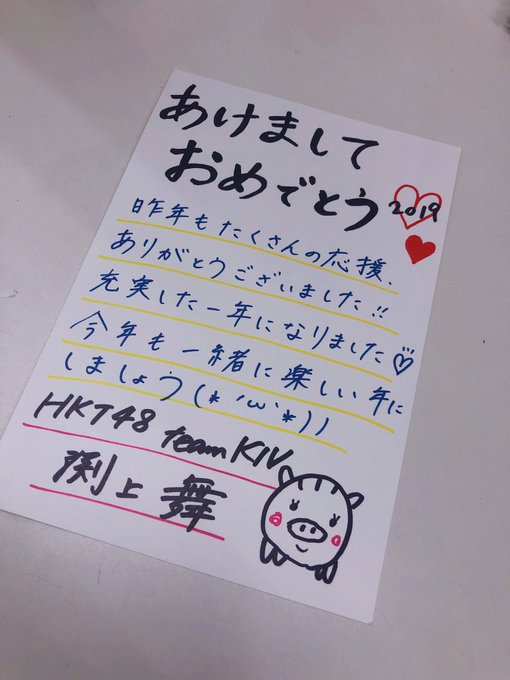 あけまして
おめでとう
2019
昨年もたくさんの応援、
ありがとうございました!!
充実した一年になりました♡
今年も一緒に楽しい年に
しましょう(*´ω`*))
HKT48 team KIV
渕上 舞